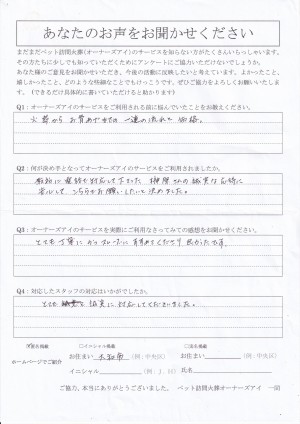 あなたのお声をお聞かせください
まだまだペット訪問火葬(オーナーズアイ)のサービスを知らない方がたくさんいらっしゃいます。
その方たちに少しでも知っていただくためにアンケートにご協力いただけないでしょうか。
あなた様のご意見をお聞かせいただき、今後の活動に反映したいと考えています。よかったこと、
嬉しかったこと、どのような些細なことでもけっこうです。ぜひご協力をよろしくお願いいたします。
(できるだけ具体的に書いていただけると助かります)
Q1：オーナーズアイのサービスをご利用される前に悩んでいたことをお教えください。
火葬から お骨あげまでの 一連の流れと 価格。
Q2：何が決め手となってオーナーズアイのサービスをご利用されましたか。
対応して下さった さんの誠実な
安心して、こちらにお願いしたいと決めました。
Q3：オーナーズアイのサービスを実際にご利用なさってみての感想をお聞かせください。
とても丁寧に かつ スムーズに すすめてくださり 良かったです。
Q4：対応したスタッフの対応はいかがでしたか。
とても 誠実に 対応してくださいました。
匿名掲載
□イニシャル掲載
□実名掲載
ホームページでご紹介
お住まい
(例：中央区)
お住まい
(例：中央区)
イニシャル
(例：J．I)
氏名
ご協力、本当にありがとうございました。 ペット訪問火葬オーナーズアイ 一同